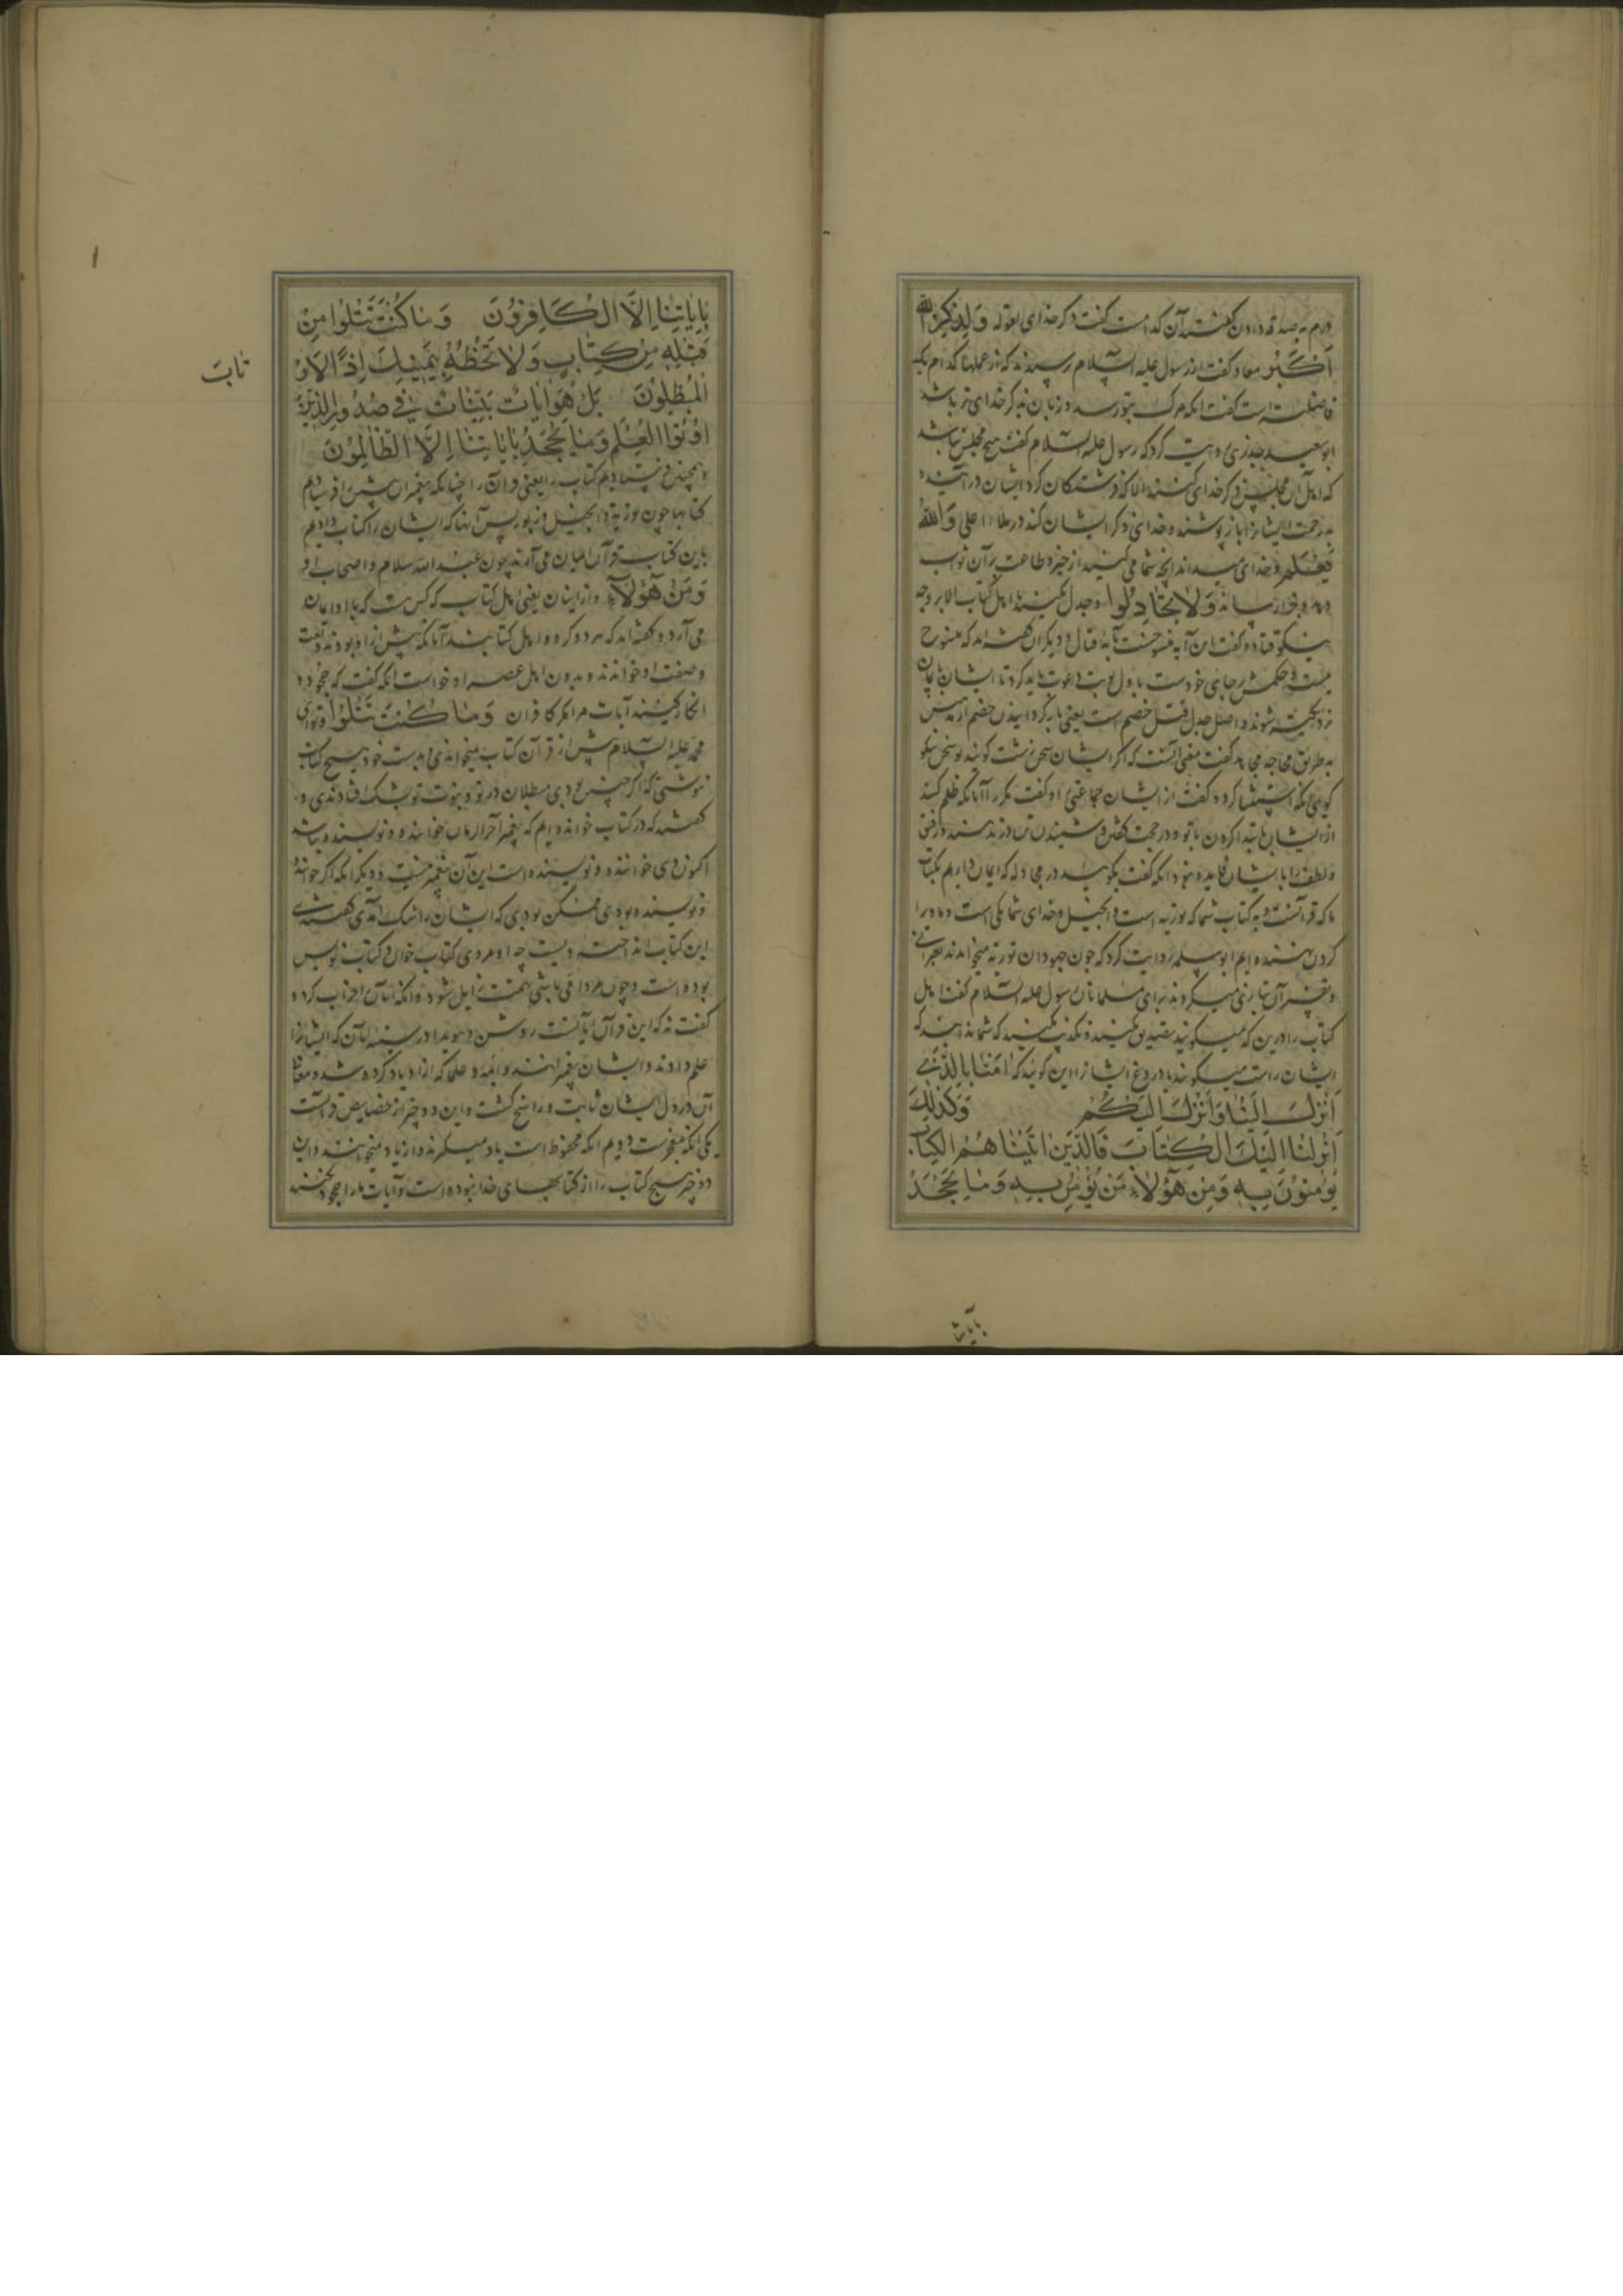 درم به صدقه دادن گفتند آن کدامست گفت ذکر خدای بقوله وَلَذِکْرُ اللّٰه
اَکْبَرُ معاد گفت از رسول علیه السلام پرسیدند که از عملها کدام یک
فاضلتر است گفت آنکه مرک بتو رسد و زبان بذکر خدای تر باشد
ابوسعید خدری روایت کرد که رسول علیه السلام گفت هیچ مجلس نباشد
که اهل آن مجلس ذکر خدای کنند الا که فرشتکان کرد ایشان در آیند و
به رحمت ایشانرا باز پوشند و خدای ذکر ایشان کند در ملاء اعلی وَاللّٰهُ
یَعْلَم و خدای میداند آنچه شما می کنید از خیر و طاعت بر آن ثواب
دهد و جزا رساند وَلاٰ تُجٰادِلُوا و جدل مکنید با اهل کتاب الا بر وجه
نیکو قتاده گفت این آیه منسوخست بآیه قتال و دیکران گفته اند که منسوخ
نیست و حکمش بر جای خودست باول نوبت دعوت باید کرد تا ایشان بایمان
نزدیکتر شوند و اصل جدل فتل خصم است یعنی باز گردانیدن خصم از مذهبش
به طریق محاجه مجاهد گفت معنی آنست که اگر ایشان سخن زشت گویند تو سخن نیکو
گوی آنکه استثنا کرد و گفت از ایشان جماعتی را و گفت مگر آنانکه ظلم کنند
از ایشان بابتدا کردن با تو و در حجت گفتن و شنیدن
و لطف را با ایشان نماید و خود آنکه گفت بگوئید در مجادله که ایمان داریم بکتاب
ما که قرآنست و به کتاب شما که توریه است و انجیل و خدای شما یکی است و ما او را
گردن نهنده ایم ابوسلمه روایت کرد که چون جهودان توریة میخواندند بعبرانی
و تفسیر آن بتازی میکردند برای مسلمانان رسول علیه السلام گفت اهل
کتاب را درین که میگویند تصدیق مکنید و تکذیب مکنید که شما ندانید که
ایشان راست میگویند یا دروغ ایشانرا این گوئید که اٰمَنّٰا بِالَّذی
اُنْزِلَ اِلَیْنٰا وَاُنْزِلَ اِلَیْکُمْ وَکَذٰلِکَ
اَنْزَلْنٰا اِلَیْکَ الْکِتٰابَ فَالَّذینَ اٰتَیْنٰاهُمُ الْکِتٰابَ
یُؤْمِنُونَ بِهِ وَمِنْ هٰؤُلاٰءِ مَنْ یُؤْمِنُ بِهِ وَمٰا یَجْحَدُ
بایاتنا
بِاٰیٰاتِنٰا اِلَّا الْکٰافِرُونَ وَمٰا کُنْتَ تَتْلُوا مِنْ
قَبْلِهِ مِنْ کِتٰابٍ وَلاٰ تَخُطُّهُ بِیَمینِکَ اِذًا لاَرْ
تٰابَ
الْمُبْطِلُونَ بَلْ هُوَ اٰیٰاتٌ بَیِّنٰاتٌ فی صُدُورِ الَّذینَ
اُوتُوا الْعِلْمَ وَمٰا یَجْحَدُ بِاٰیٰاتِنٰا اِلَّا الظّٰالِمُونَ
و همچنین فرستادیم کتاب را یعنی قرآن را چنانکه به پیغمبران پیشین فرستادیم
کتابها چون توریة و انجیل و زبور پس آنها که ایشان را کتاب دادیم
باین کتاب قرآن ایمان می آرند چون عبد الله سلام و اصحاب او
وَمِنْ هٰؤُلاٰءِ و از اینان یعنی اهل کتاب کس هست که باو ایمان
می آرد و گفته اند که هر دو گروه اهل کتابند آنانکه پیش از او بودند و نعت
و صفت او خواندند و بدون اهل عصر او خواست آنکه گفت که جحود و
انکار نکنند آیات مرا مگر کافران وَمٰا کُنْتَ تَتْلُوا و تو ای
محمد علیه السلام پیش از قرآن کتاب نمیخواندی و بدست خود هیچ کتاب
ننوشتی که اگر چنین بودی مبطلان در تو و نبوت تو بشک افتادندی و
گفتند که در کتاب خوانده ایم که پیغمبر آخر الزمان خواننده و نویسنده نباشد
اکنون وی خواننده و نویسنده است این آن پیغمبر نیست و دیگر آنکه اگر خواننده
و نویسنده بودی ممکن بودی که ایشان را شک آمدی گفتندی
این کتاب انداخته ویست چه او مردی کتاب خوان و کتاب نویس
بوده است و چون مرد امی باشی تهمت زایل شود و آنکه از آن اضراب کرد و
گفت نه که این قرآن آیاتست روشن و هویدا در سینه آنان که ایشانرا
علم دادند و ایشان پیغمبرانند و ائمه و علما که از او یاد کرده شد و معانی
آن در دل ایشان ثابت و راسخ گشت و این دو چیز از خصایص قرآنست
یکی آنکه معجزست دویم آنکه محفوظ است یاد میگیرند و از یاد میخوانند و این
دو چیز هیچ کتاب را از کتابهای خدا نبوده است و آیات ما را جحود نکنند